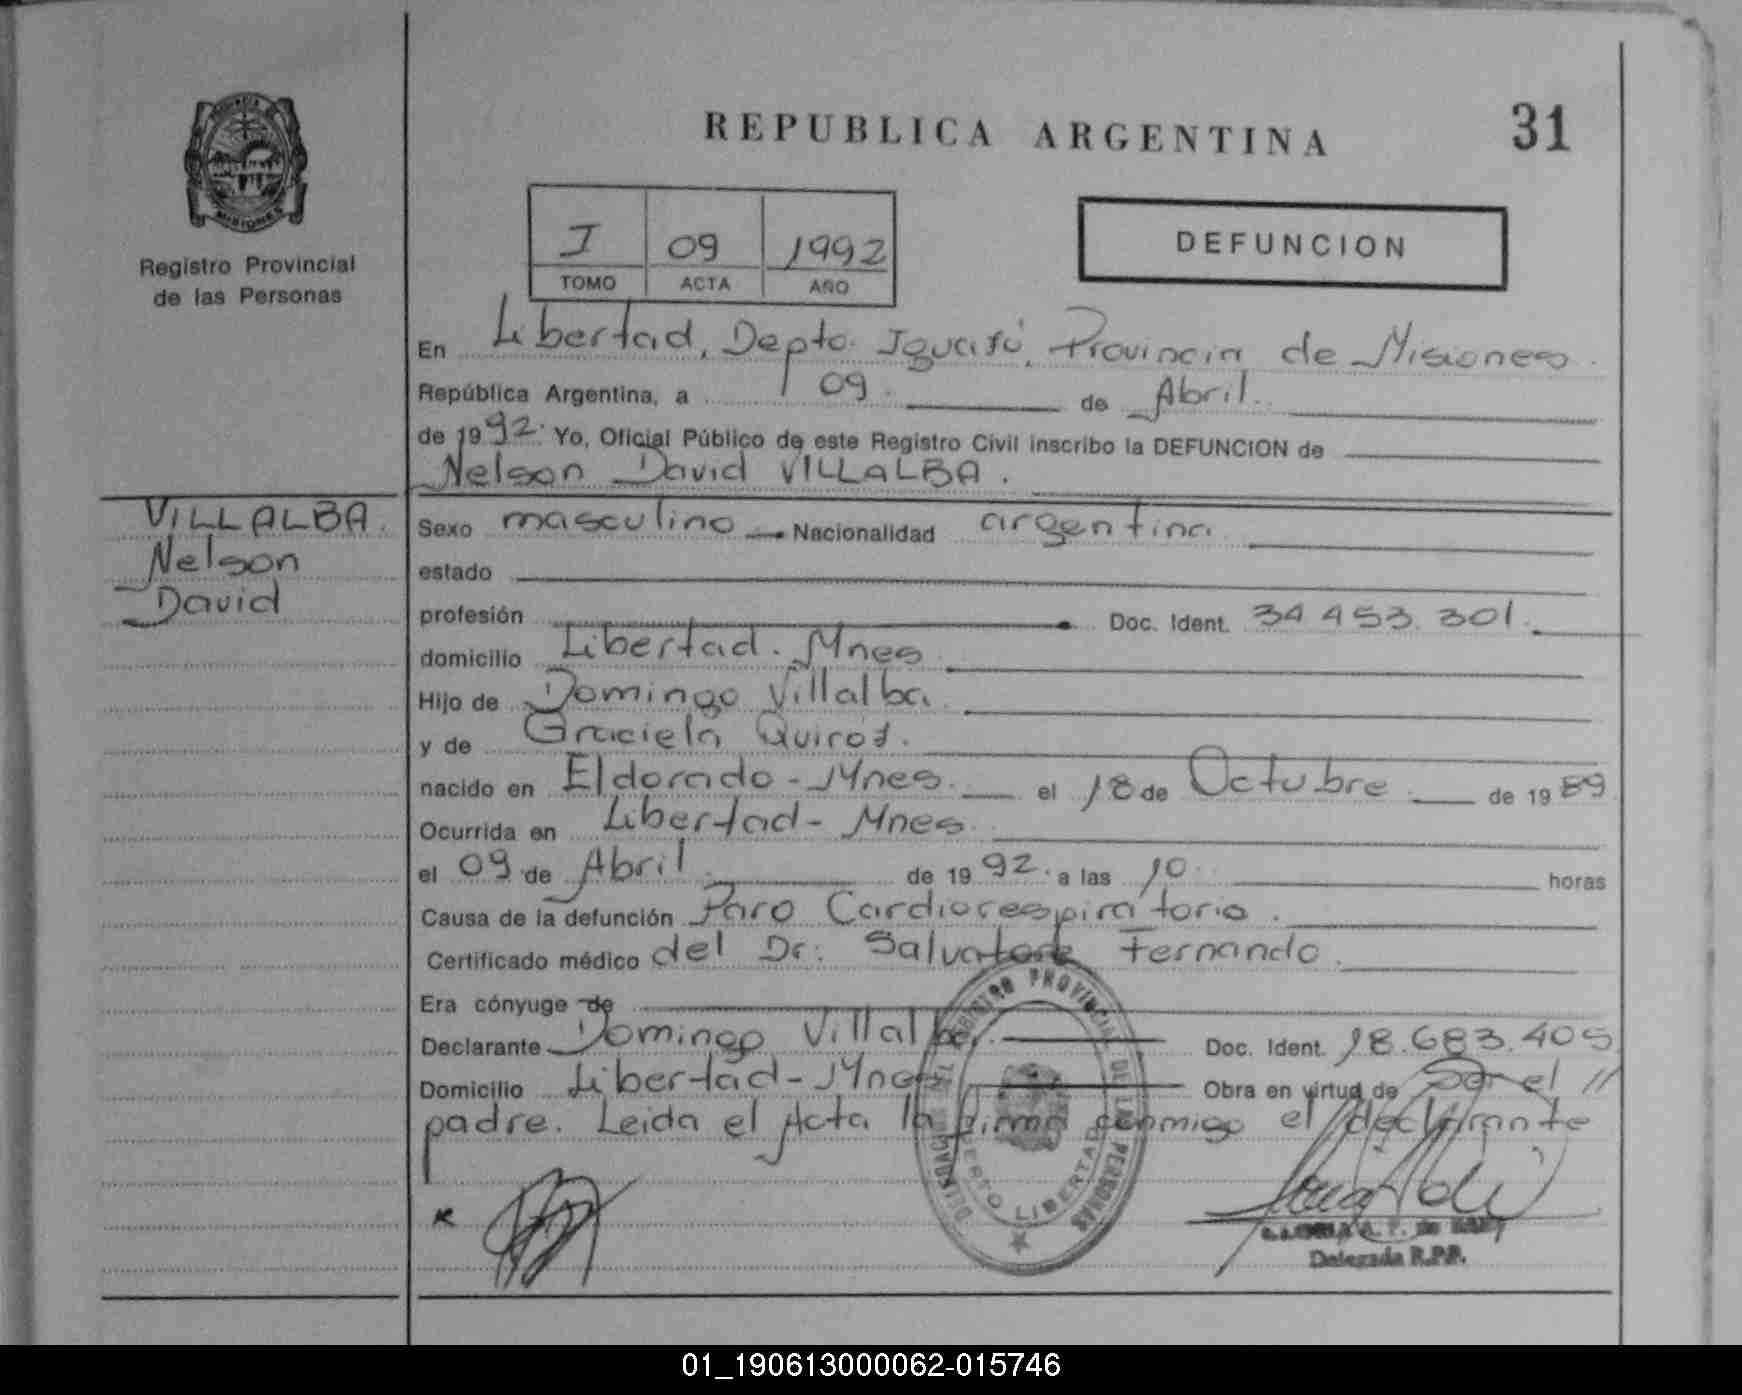 REPUBLICA ARGENTINA
31
MISIONES
Registro Provincial
de las Personas
I 09 1992
TOMO ACTA AÑO
DEFUNCION
En Libertad, Depto. Iguasú, Provincia de Misiones.
República Argentina, a 09. de Abril.
de 1992. Yo, Oficial Público de este Registro Civil inscribo la DEFUNCION de
Nelson David VILLALBA.
VILLALBA.
Nelson
David
Sexo masculino Nacionalidad argentina
estado
profesión Doc. Ident. 34 453.301.
domicilio Libertad. Mnes
Hijo de Domingo Villalba.
y de Graciela Quiroz.
nacido en Eldorado - Mnes. el 18 de Octubre de 1989
Ocurrida en Libertad - Mnes.
el 09 de Abril de 1992. a las 10. horas
Causa de la defunción Paro Cardiorespiratorio.
Certificado médico del Dr: Salvatore Fernando.
Era cónyuge de
Declarante Domingo Villalba. Doc. Ident. 18.683.405
Domicilio Libertad - Mnes Obra en virtud de Ser el //
padre. Leida el Acta la firma conmigo el declarante
REGISTRO PROVINCIAL DE LAS PERSONAS
PUERTO LIBERTAD
Delegada R.P.P.
01_190613000062-015746